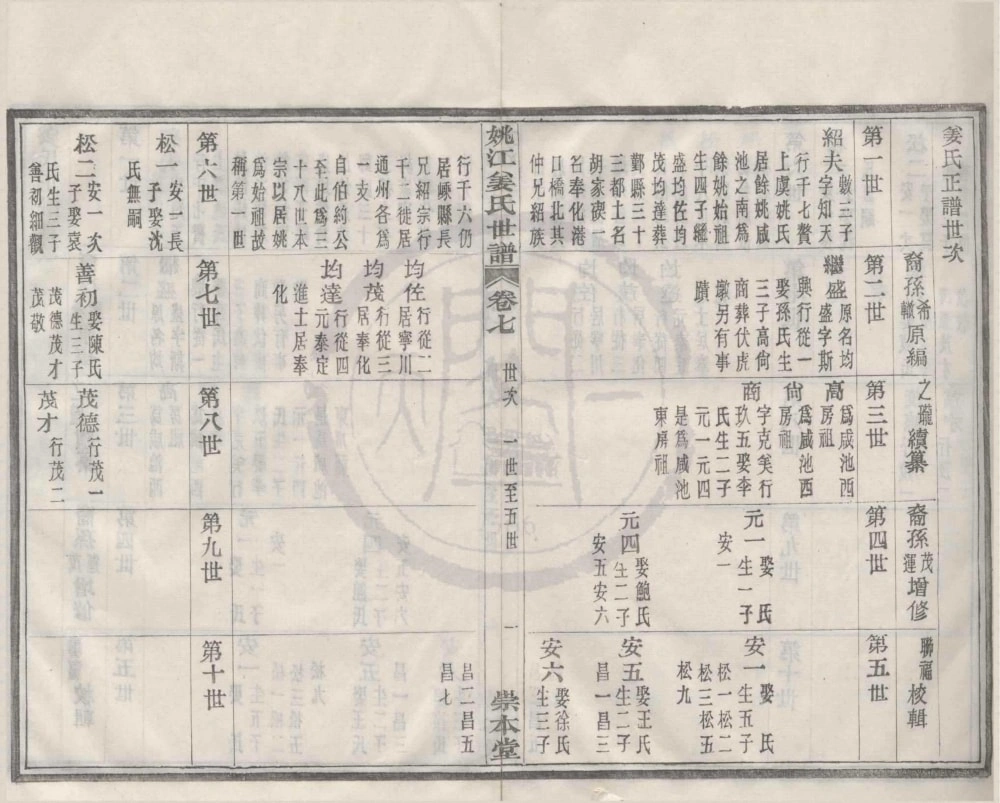 姜氏正譜世次
裔孫希轍原編
之瓏續纂
裔孫茂運增修
聯福校輯
第一世
紹夫敏三子
字知天
行千七贅
上虞姚氏
居餘姚咸
池之南為
餘姚始祖
生四子繼
盛均佐均
茂均達葬
鄞縣三十
三都土名
胡家碶一
名奉化港
口橋北其
仲兄紹族
行千六仍
居嵊縣長
兄紹宗行
千二徙居
通州各為
一支
自伯約公
至此為三
十八世本
宗以居姚
為始祖故
稱第一世
第二世
繼盛原名均
盛字斯
興行從一
娶孫氏生
三子高尙
商葬伏虎
墩另有事
蹟
均佐行從二
居寧川
均茂行從三
居奉化
均達行從四
元泰定
進士居奉
化
第三世
高為咸池西
房祖
尙為咸池西
房祖
商字克美行
玖五娶李
氏生二子
元一元四
是為咸池
東房祖
第四世
元一娶 氏
生一子
安一
元四娶鮑氏
生二子
安五安六
第五世
安一娶 氏
生五子
松一松二
松三松五
松九
安五娶王氏
生二子
昌一昌三
安六娶徐氏
生三子
昌二昌五
昌七
姚江姜氏世譜 卷七 世次 一世至五世 一 崇本堂
第六世
松一安一長
子娶沈
氏無嗣
松二安一次
子娶袁
氏生三子
善初細觀
第七世
善初娶陳氏
生三子
茂德茂才
茂敬
第八世
茂德行茂一
茂才行茂二
第九世
第十世